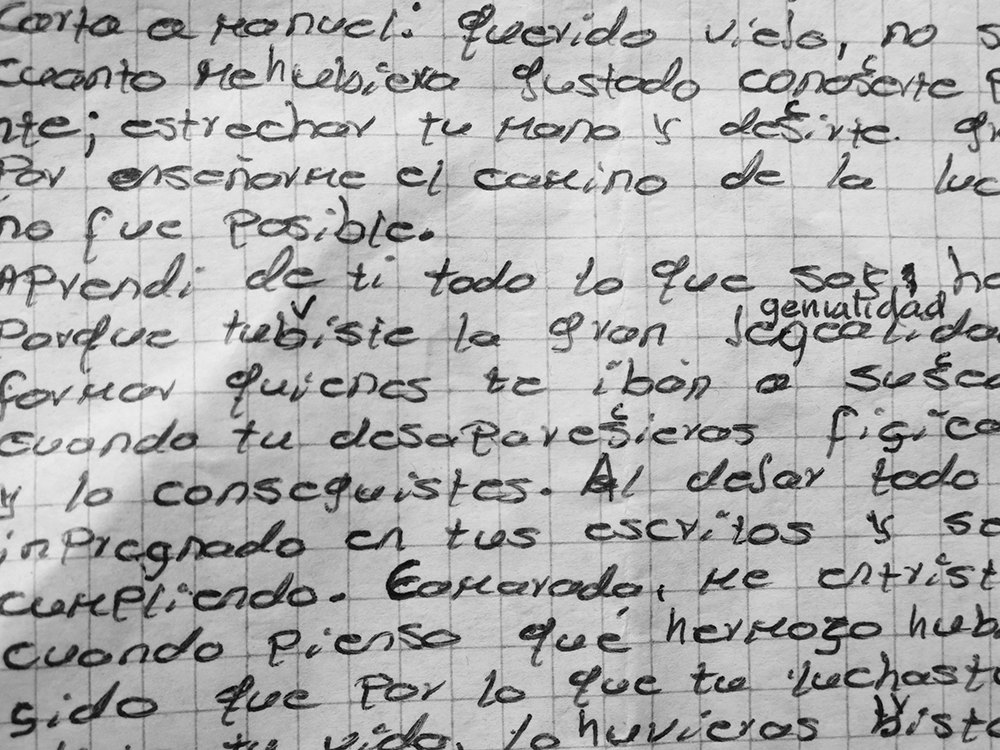 Carta a Manuel: querido viejo, no s
cuanto me hubiera gustado conoserte p
nte; estrechar tu mano y desirte. gr
Por enseñarme el camino de la luc
no fue posible.
APrendi de ti todo lo que soy, ho
genialidad
Porque tubiste la gran
formar quienes te iban a sused
cuando tu desaparesieras fisica
y lo conseguistes. Al dejar todo
inPregnado en tus escritos y se
cumpliendo. Camarada, me entrist
cuando pienso qué hermozo hub
sido que por lo que tu luchast
tu vida, lo huvieras bisto